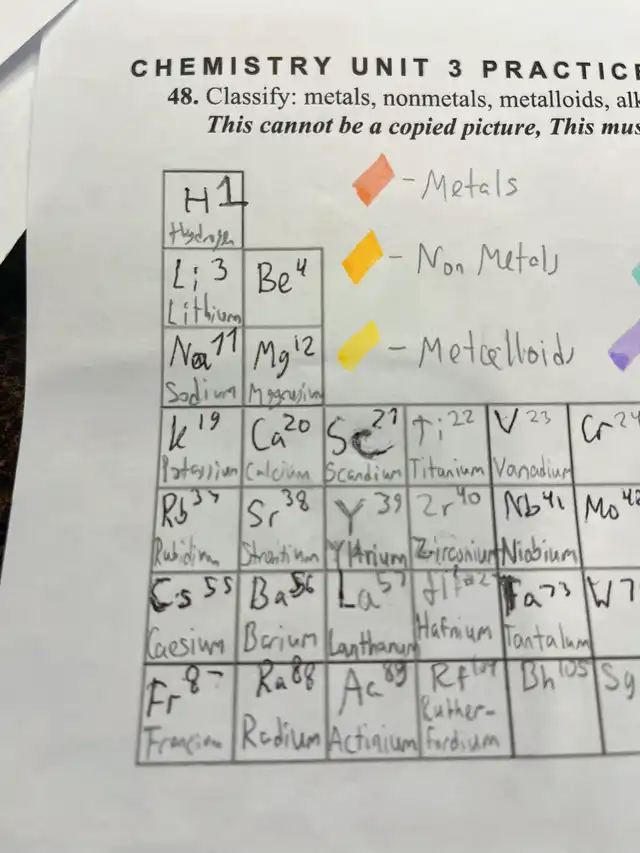 CHEMISTRY UNIT 3 PRACTICE
48. Classify: metals, nonmetals, metalloids, alk
This cannot be a copied picture, This mus
H 1
Hydrogen
- Metals
Li 3
Lithium
Be 4
- Non Metals
Na 11
Sodium
Mg 12
- Metalloids
K 19
Potassium
Ca 20
Calcium
Sc 21
Scandium
Ti 22
Titanium
V 23
Vanadium
Cr 24
Rb 37
Rubidium
Sr 38
Y 39
Yttrium
Zr 40
Zirconium
Nb 41
Niobium
Mo 42
Cs 55
Caesium
Ba 56
Barium
La 57
Lanthanum
Hafnium
Ta 73
Tantalum
W 7
Fr 87
Ra 88
Radium
Ac 89
Actinium
Rf
Ruther-
fordium
Bh 105
Sg